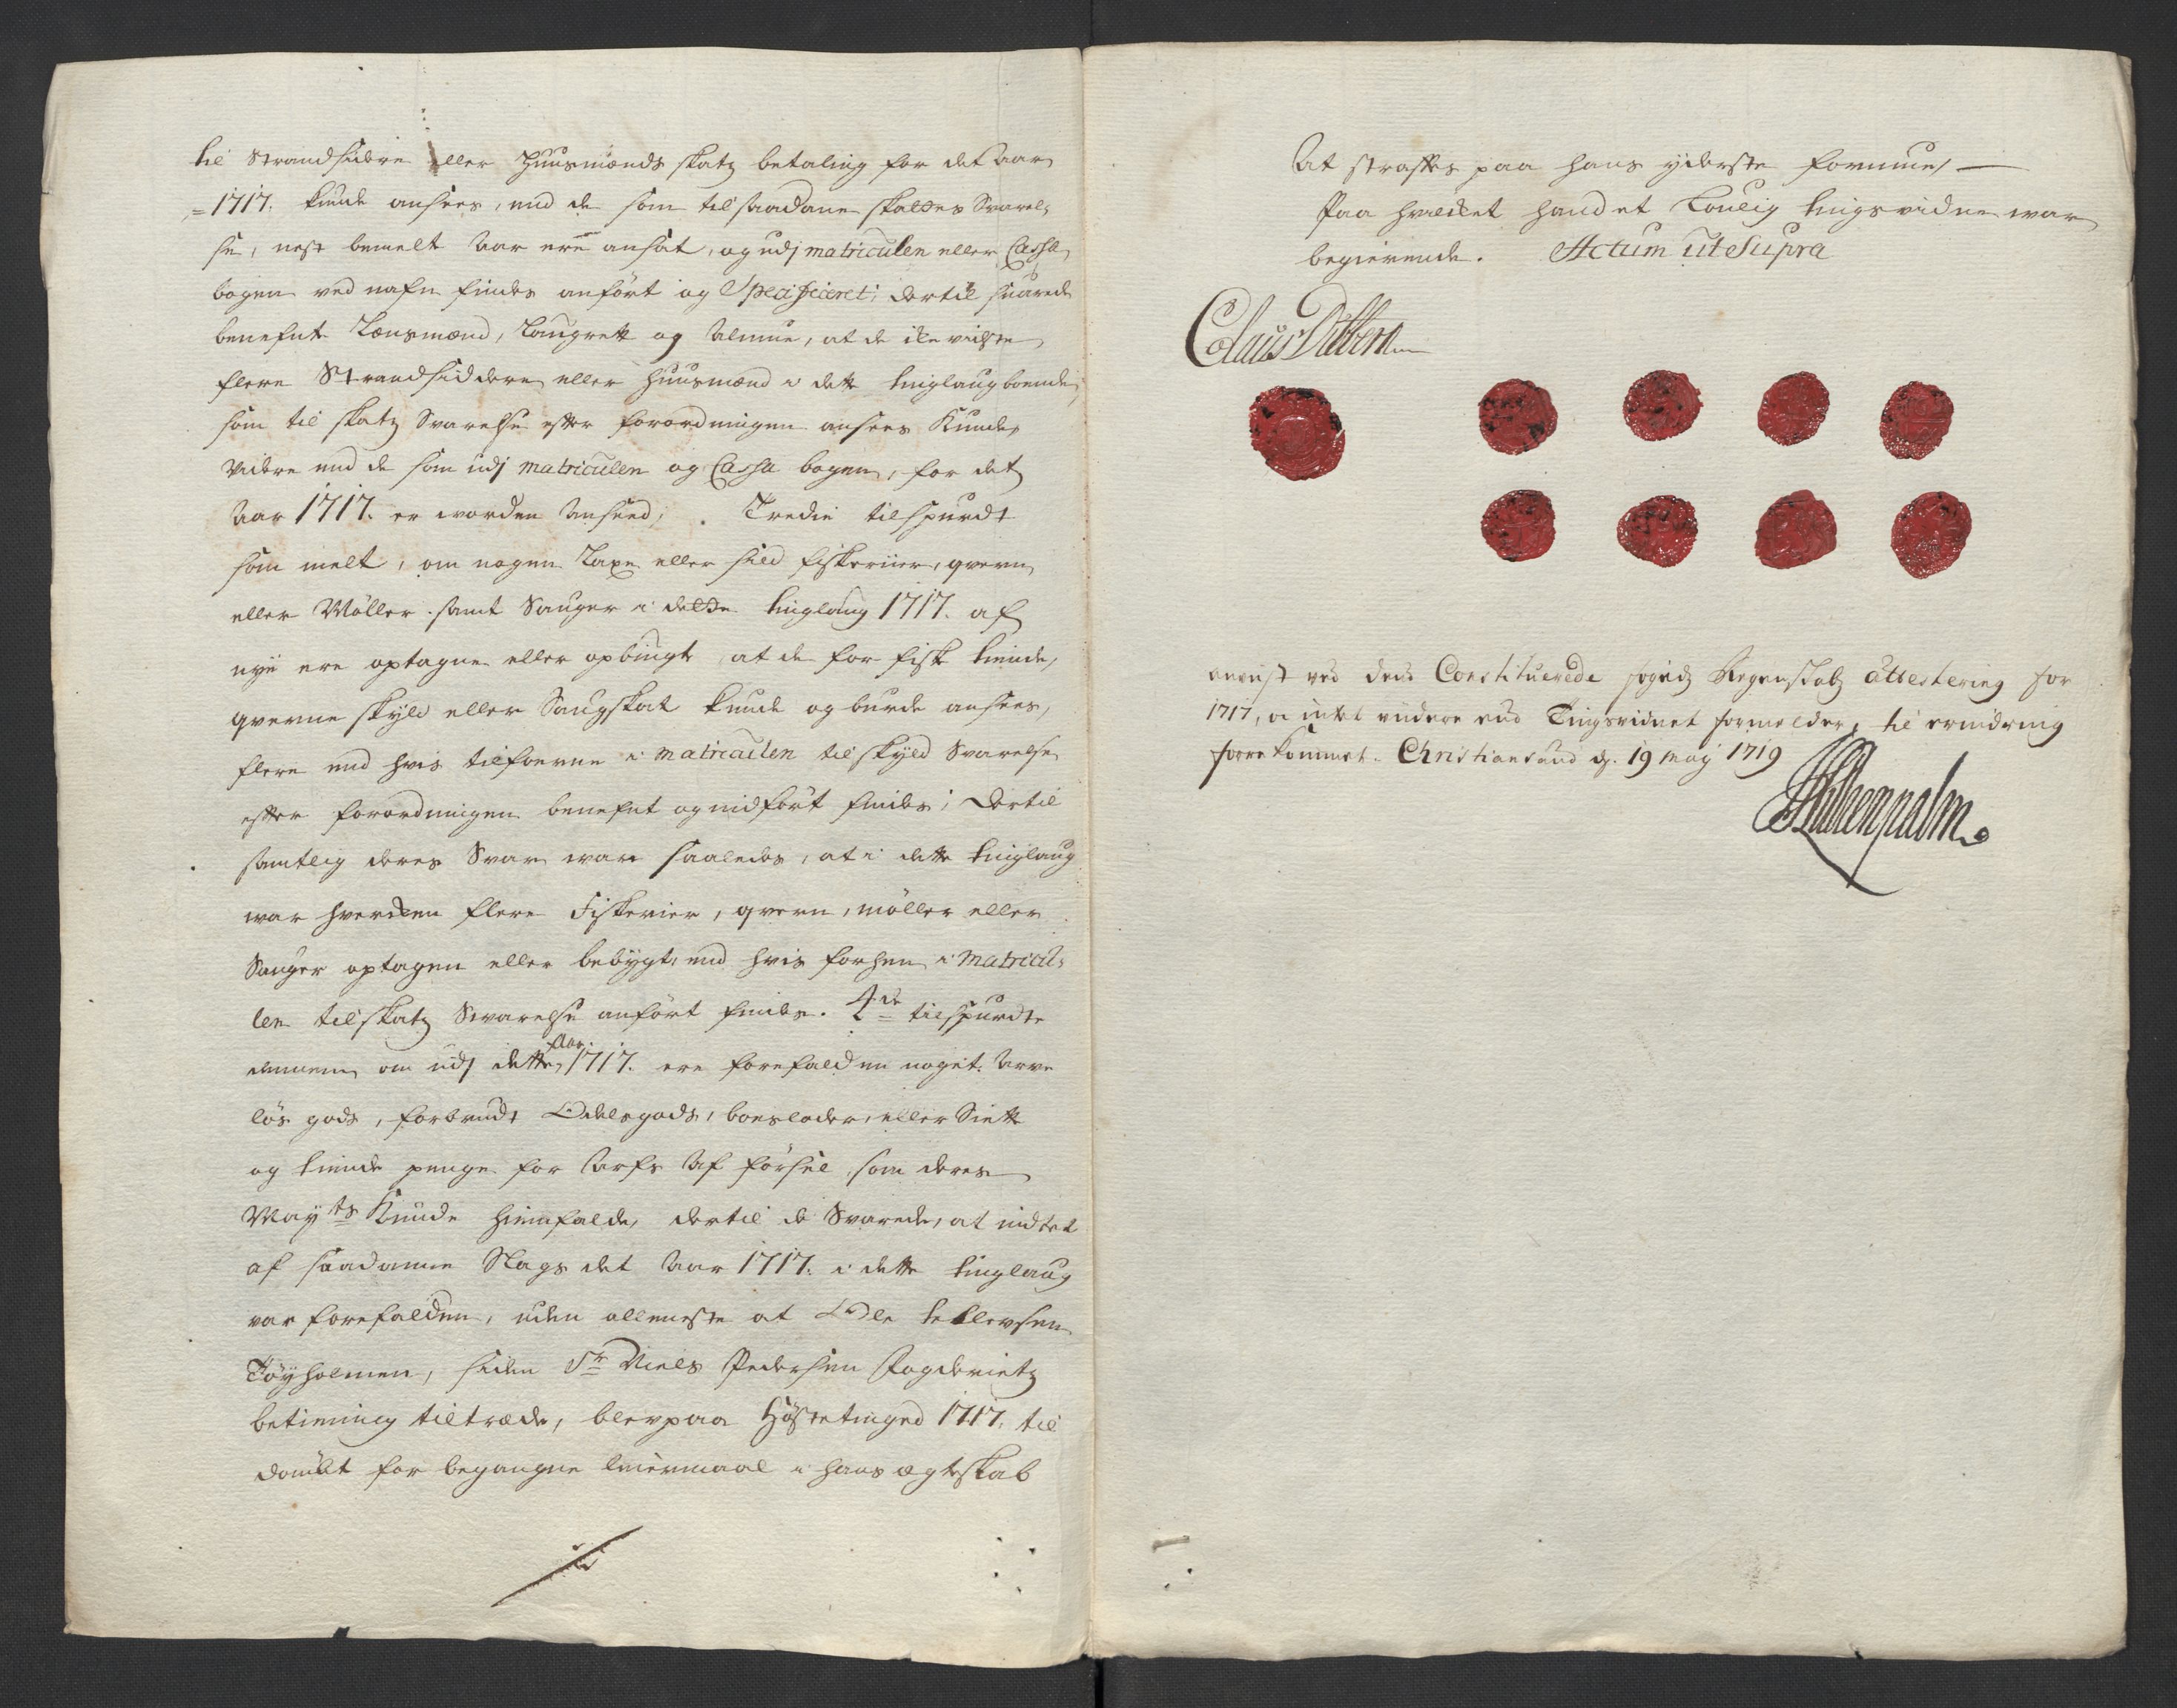 til Strandsidere eller Huusmænds skatz betaling for det Aar
=1717. kunde ansees, end de som til saadane skatters Svarel,,
se, nest bemelt Aar ere ansat, og udj matriculen eller Cassa
bogen ved nafn findes anført og Specificeret; dertil svarede
benefnte Lensmænd, Laugrett og Almue, at de icke vidste
flere Strandsiddere eller Huusmænd i dette tinglaug boende,
som til skatz Svarelse efter forordningen ansees kunde,
videre end de som udj matriculen og Cassa bogen, for det
Aar 1717. er worden Anseed; Tredie tilspurdt
som melt, om nogen Laxe eller sild fiskerier, qvern
eller Møller samt Sauger i dette tinglaug 1717. af
nye ere optagne eller opbiugt at de for fisk tiende,
qverne skyld eller Saugskat kunde og burde ansees,
flere end hvis tilforne i matriculen til skyld Svarelse
efter forordningen benefnt og indført findes; dertil
samtlig deres Svar war saaledes, at i dette tinglaug
war hvercken flere Fiskerier, qvern, møller eller
Sauger optagen eller bebygt, end hvis forhen i Matricul,,
len til skatz Svarelse anført findes. 4de tilspurdte
om udj dette Aar 1717. ere forefalden noget Arve
løs gods, forbrudt Odelsgods, boeslader, eller Siette
og tiende penge for Arfs Af førsel, som deres
Mayts Kunde hiemfalde, dertil de Svarede, at indtet
af saadanne Slags det Aar 1717. i dette tinglaug
var forefalden, uden alleneste at Ole tellevsen
Tøyholmen, siden Sr Niels Pedersen Fogderietz
betiening tiltræde, blev paa Høstetinged 1717. til
dømbt for begangne leiermaal i hans ægteskab
At straffes paa hans yderste formue,
Paa hvilcket hand et Lovlig tingsvidne war
begierende. Actum ut Supra
Claus Dibbern
anvist ved dend Constituerede fogedz Regenskab attestering for
1717, er intet videre end Tingsvidnet formelder, til erindring
forrekommet. Christiansund d. 19 maij 1719